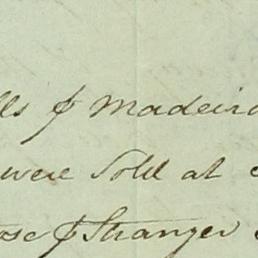 lls of Madeira
were Sold at
ose of Stranger